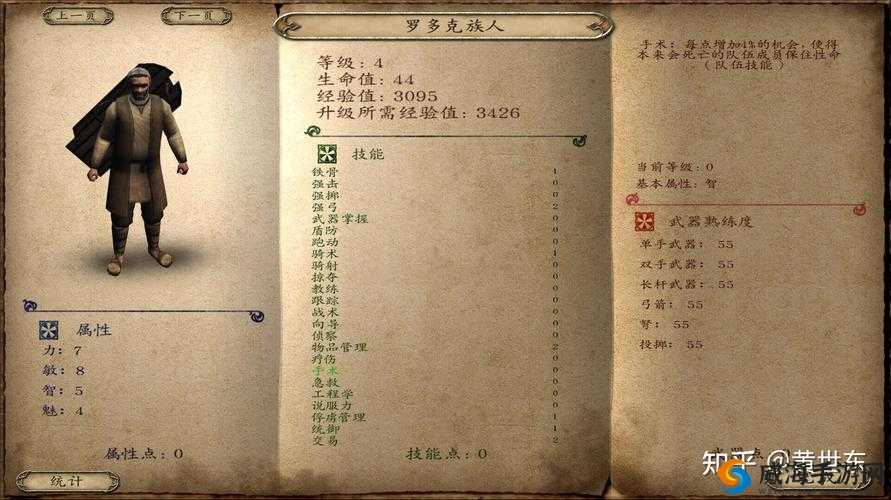 上一页
下一页
罗多克族人
等级: 4
生命值: 44
经验值: 3095
升级所需经验值: 3426
技能
铁骨 1
强击 0
强掷 0
强弓 2
武器掌握 0
盾防 0
跑动 0
骑术 1
骑射 0
掠夺 0
教练 0
跟踪 0
战术 0
向导 0
侦察 0
物品管理 2
疗伤 0
手术 0
急救 0
工程学 0
说服力 0
俘虏管理 1
统御 1
交易 2
技能点: 0
属性
力: 7
敏: 8
智: 5
魅: 4
属性点: 0
统计
手术: 每点增加4%的机会, 使得
本来会死亡的队伍成员保住性命
(队伍技能)
当前等级: 0
基本属性: 智
武器熟练度
单手武器: 55
双手武器: 55
长杆武器: 55
弓箭: 55
弩: 55
投掷: 55
知乎 @黄世东
威海手游网